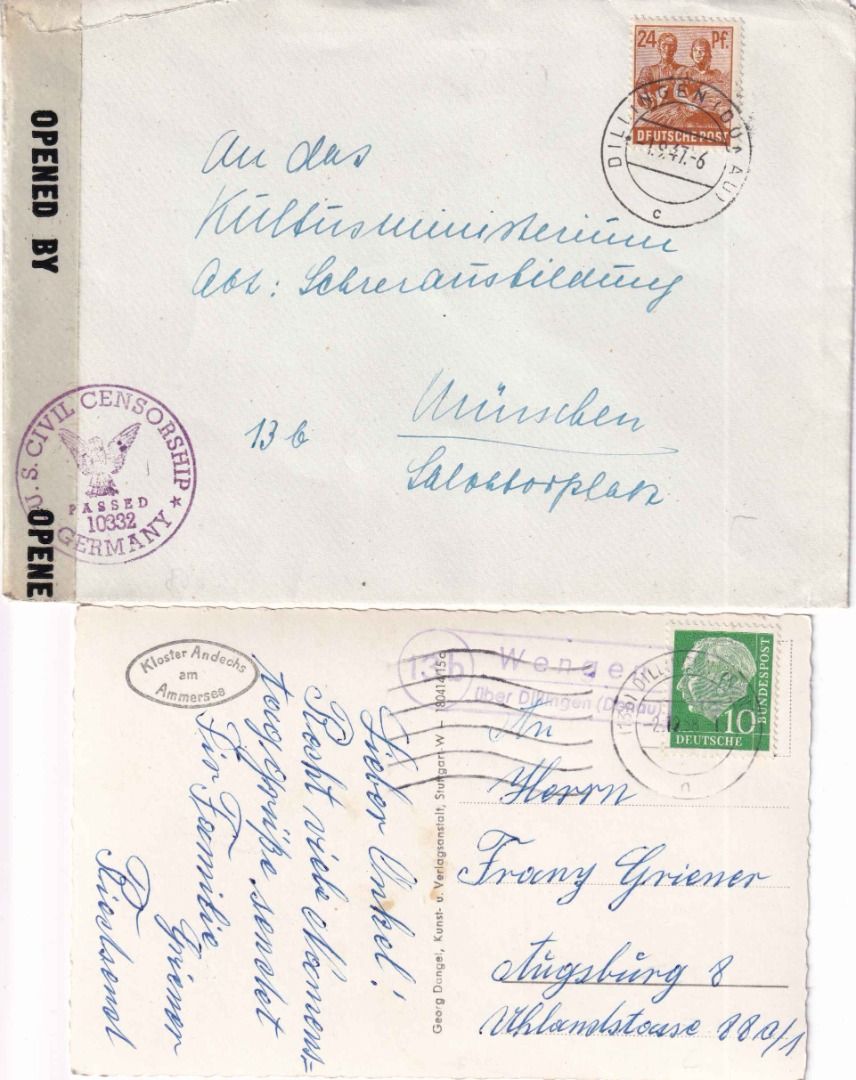 OPENED BY
OPENE
24 Pf.
DEUTSCHE POST
DILLINGEN (DONAU)
1.9.47.-6
c
An das
Kultusministerium
Abt: Lehrerausbildung
13 b
München
Salvatorplatz
U.S. CIVIL CENSORSHIP
PASSED
10332
GERMANY
Kloster Andechs
am
Ammersee
13b
Wengen
über Dillingen (Donau)
10
DEUTSCHE
BUNDESPOST
Lieber Onkel!
Recht viele Namens-
tag grüße sendet
Dir Familie
Griener
Georg Dangel, Kunst- u. Verlagsanstalt, Stuttgart-W – 180414/15c
An
Herrn
Franz Griener
Augsburg 8
Uhlandstrasse 88a/1